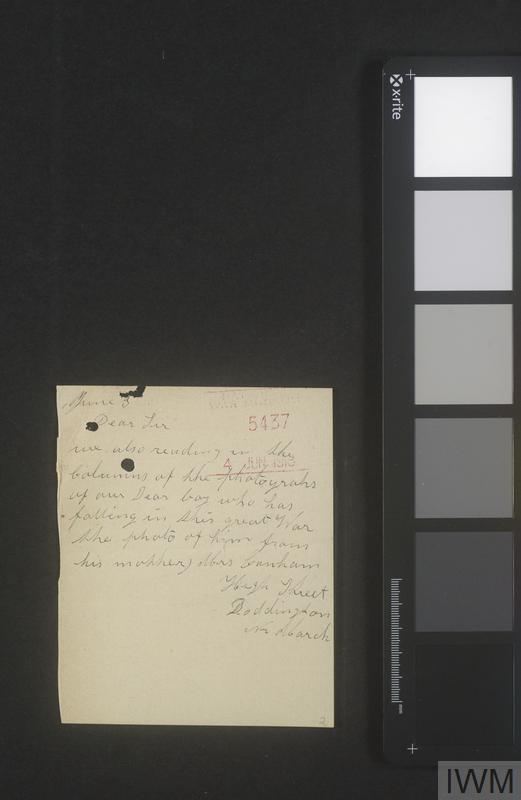 June 3
5437
Dear Sir
we also reading in the
4 JUN 1919
Columns of the photograhs
of our Dear boy who has
falling in this great War
the photo of him from
his mother) Mrs Canham
High Street
Doddington
Nr March
2
x-rite
mm
IWM